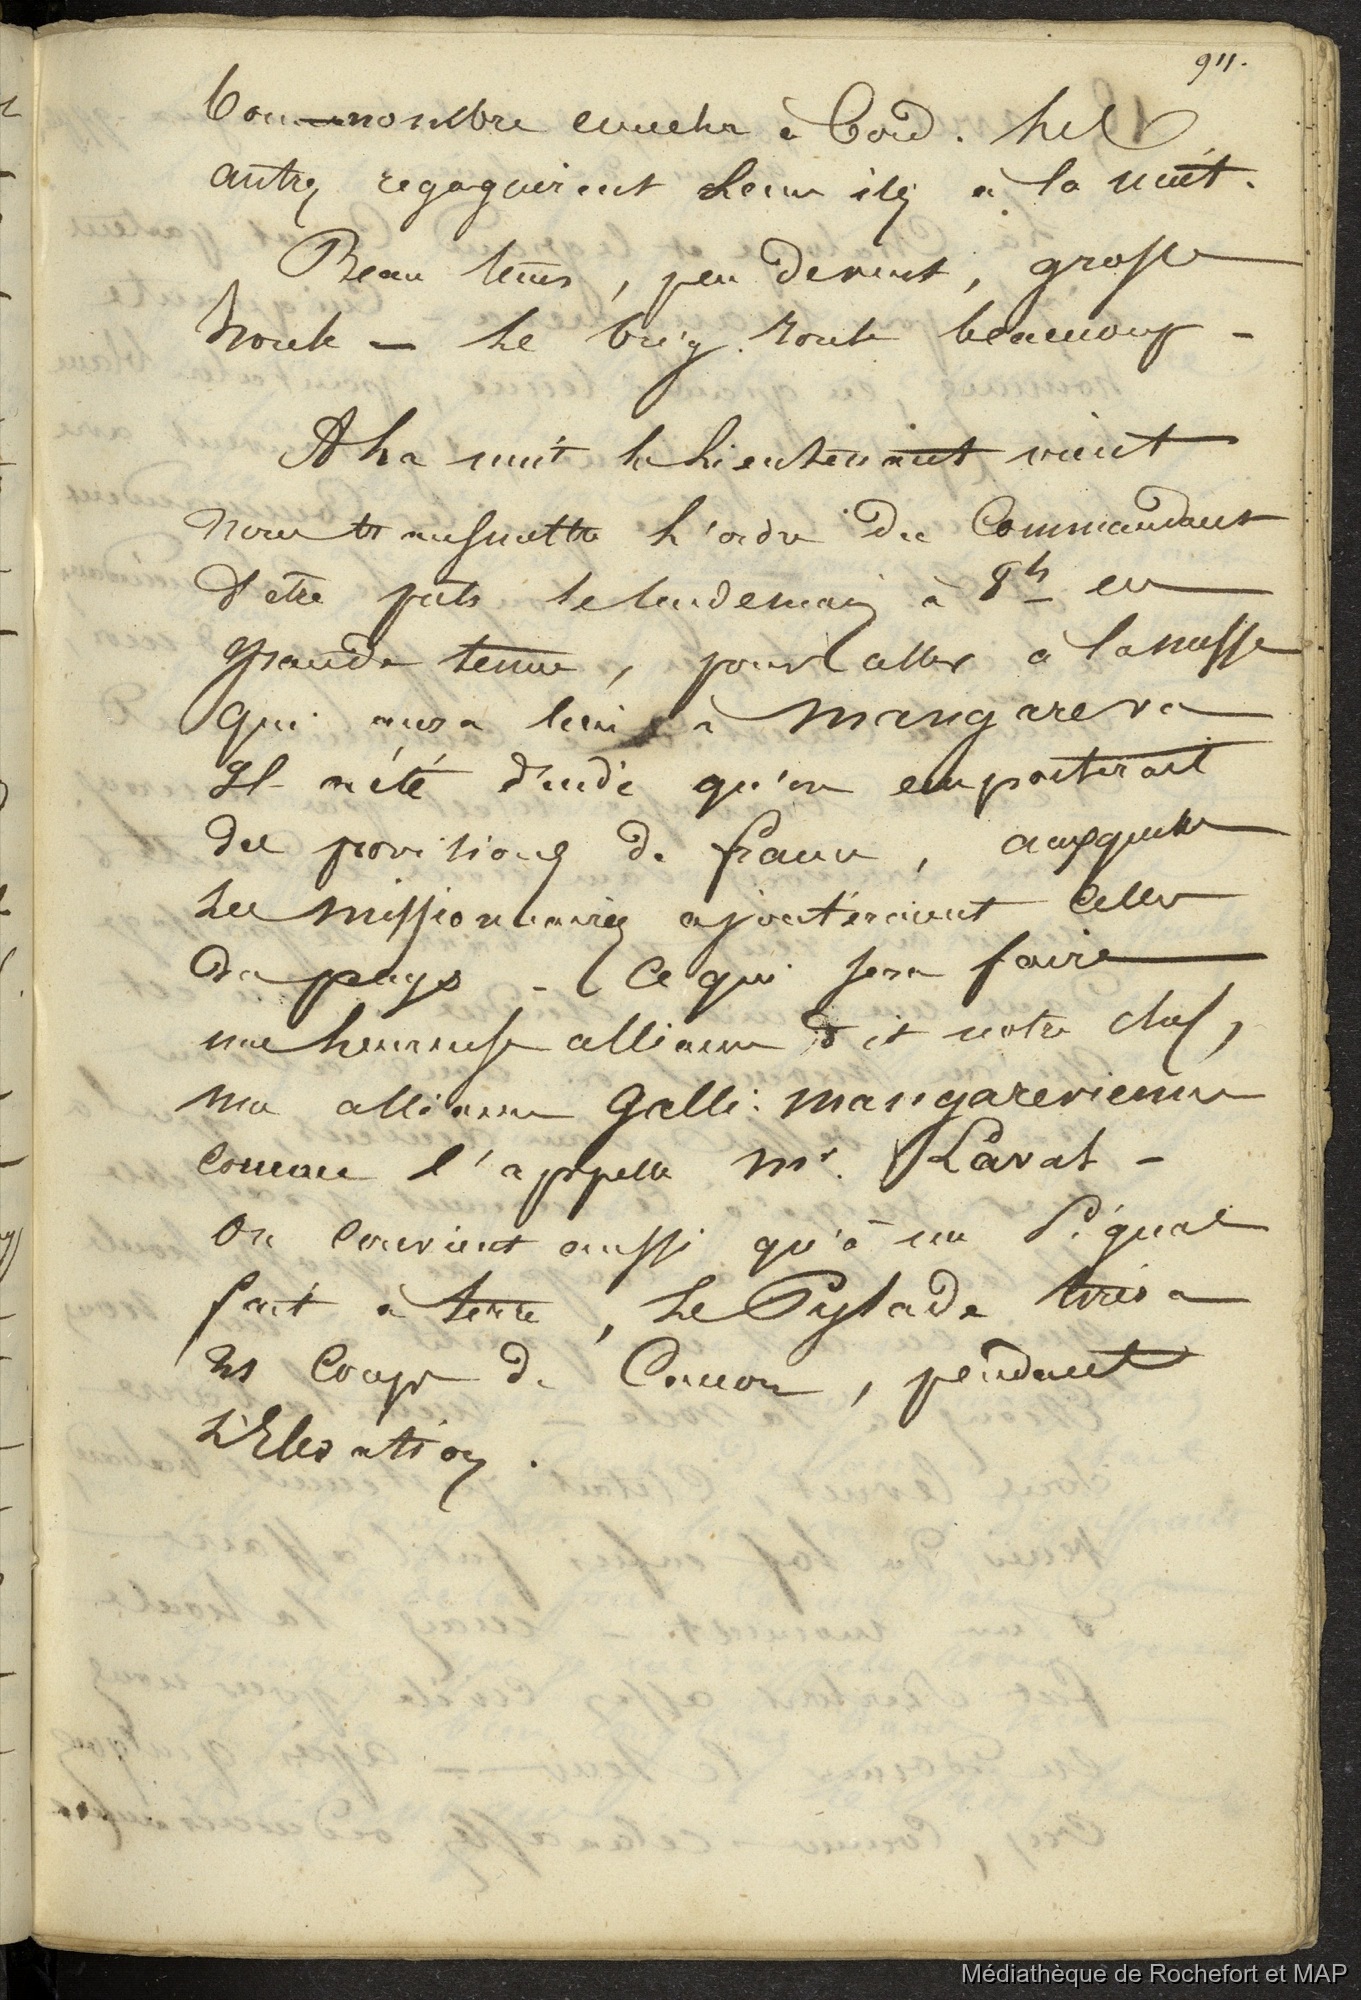 911.
bon nombre coucha à bord. Les
autres regagnèrent leurs iles à la nuit.
Beau tems, peu de vent, grosse
houle — Le brig roule beaucoup —
A la nuit le Lieutenant vint
nous transmettre l'ordre du Commandant
d'être prêts le lendemain à 8h en
grande tenue, pour aller à la messe
qui aura lieu à Mangareva
Il a été décidé qu'on emporterait
des provisions de france, auxquelles
les missionnaires ajouteraient celles
du pays — Ce qui sera faire
une heureuse alliance dit notre chef,
une alliance Galli-mangarevienne
comme l'appelle Mr. Laval —
On convient aussi qu'à un signal
fait à terre, le Pylade tirera
21 coups de Canon, pendant
l'Elévation.
Médiathèque de Rochefort et MAP